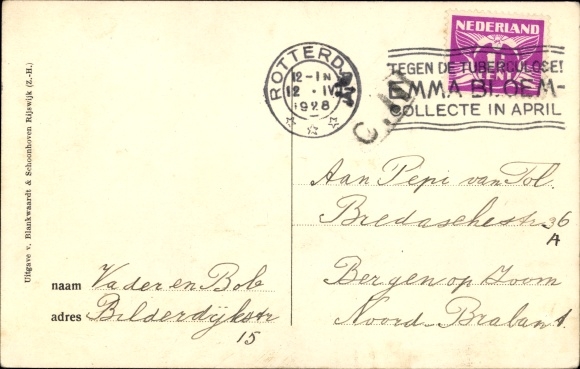 NEDERLAND
CENT
ROTTERDAM
12-1N
12.IV
1928
TEGEN DE TUBERCULOSE!
EMMA BLOEM-
COLLECTE IN APRIL
Aan Pepi van Tol.
Bredaschestr 36
A
Bergen op Zoom
Noord-Brabant.
naam Vader en Bob
adres Bilderdijkstr
15
Uitgave v. Blankwaardt & Schoonhoven Rijswijk (Z.-H.)